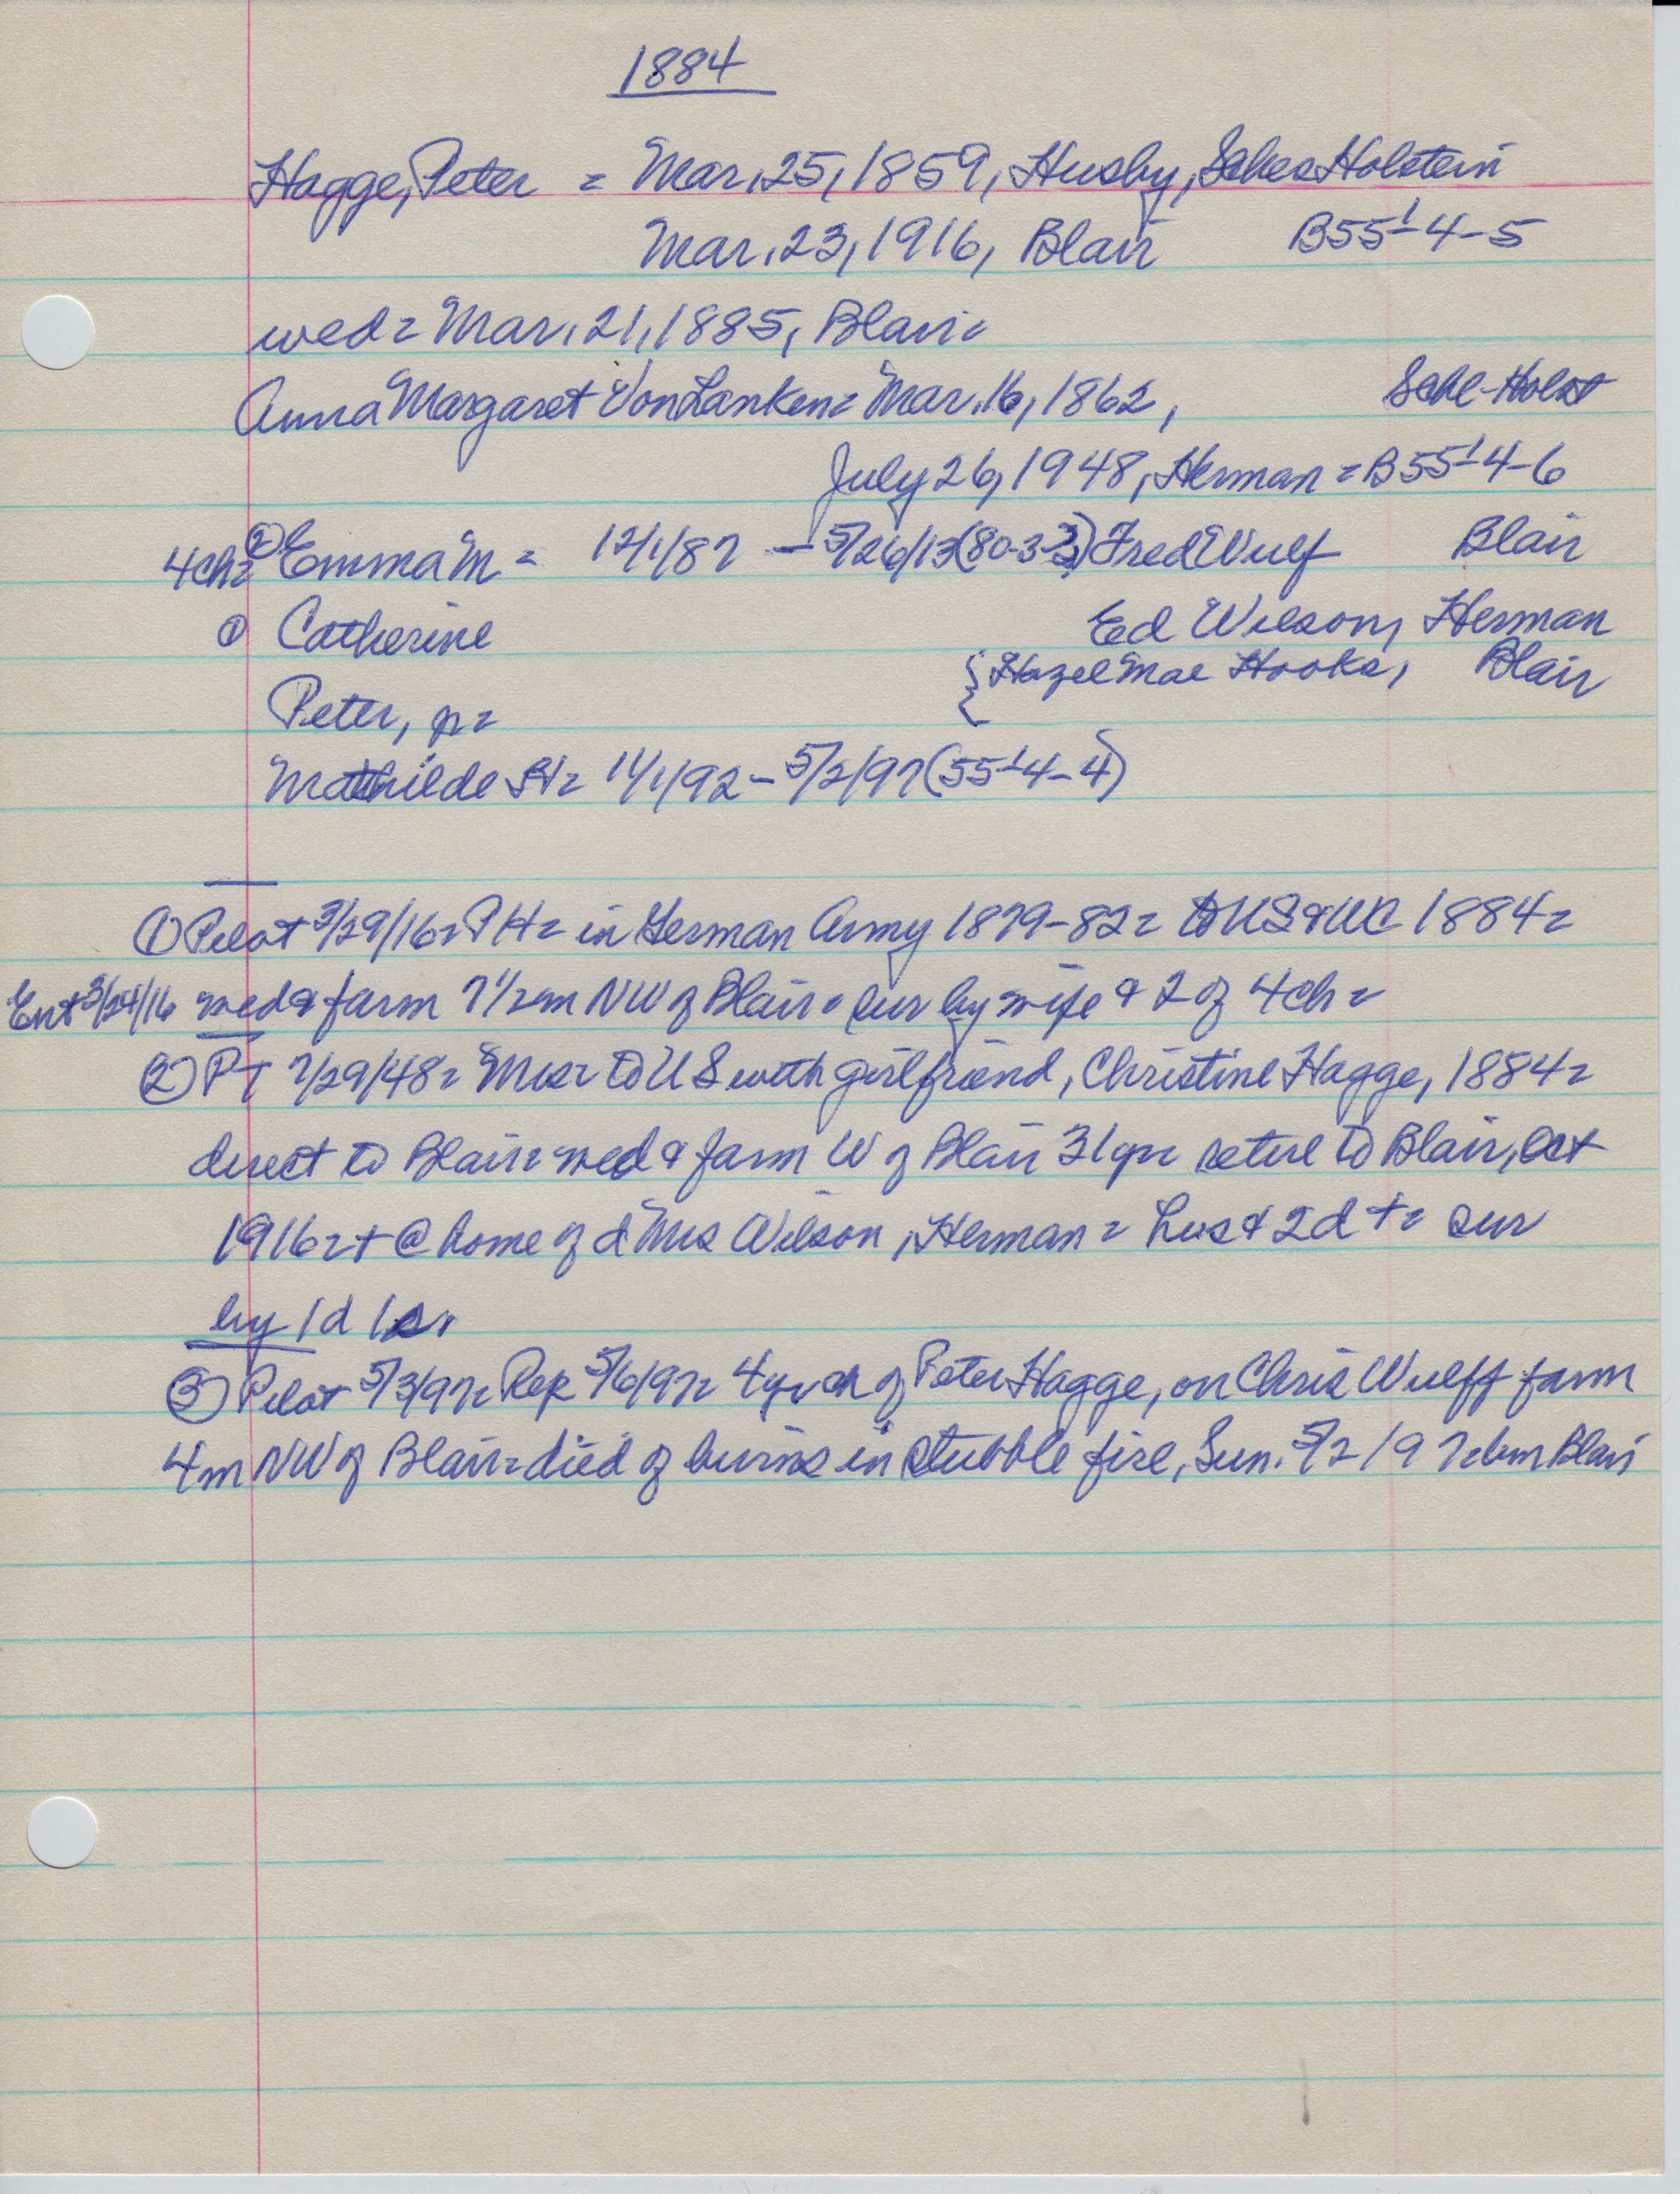 1884
Hagge, Peter = Mar. 25, 1859, Husby, Schles Holstein
Mar. 23, 1916, Blair B55-1/4-5
wed = Mar. 21, 1885, Blair =
Anna Margaret Von Lanken = Mar. 16, 1862, Schl-Holst
July 26, 1948, Herman = B55-1/4-6
4ch = ② Emma M = 12/1/87 - 5/26/13 (80-3-3) Fred Wulf Blair
① Catherine Ed Wilson, Herman
Peter, jr = { Hazel Mae Hooks, Blair
Mathilde H = 11/1/92 - 5/2/97 (55-1/4-4)
① Pilot 3/29/16 = PH = in German Army 1879-82 = to US & WC 1884 =
Ent 3/24/16 wed & farm 7 1/2 m NW of Blair = sur by wife & 2 of 4ch =
② PT 7/29/48 = Mrs = to US with girlfriend, Christine Hagge, 1884 =
direct to Blair = wed & farm W of Blair 31 yr = retire to Blair, Oct
1916 = + @ home of d Mrs Wilson, Herman = hus & 2d + = sur
by 1d 1s.
③ Pilot 5/3/97 = Rep 5/6/97 = 4 yr ch of Peter Hagge, on Chris Wulff farm
4m NW of Blair = died of burns in stubble fire, Sun. 5/2/97 = bm Blair